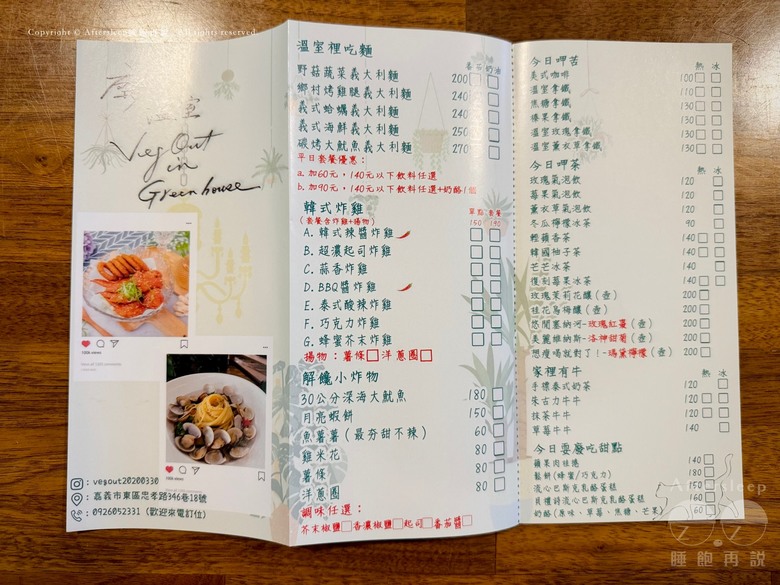 溫室
VegOut
in
Greenhouse
: vegout20200330
: 嘉義市東區忠孝路346巷18號
: 0926052331 (歡迎來電訂位)
溫室裡吃麵
番茄 奶油
野菇蔬菜義大利麵 200
鄉村烤雞腿義大利麵 240
義式蛤蠣義大利麵 240
義式海鮮義大利麵 250
碳烤大魷魚義大利麵 270
平日套餐優惠:
a. 加60元,140元以下飲料任選
b. 加90元,140元以下飲料任選+奶酪1個
韓式炸雞
單點 套餐
(套餐含炸雞+揚物) 150 190
A. 韓式辣醬炸雞
B. 超濃起司炸雞
C. 蒜香炸雞
D. BBQ醬炸雞
E. 泰式酸辣炸雞
F. 巧克力炸雞
G. 蜂蜜芥末炸雞
揚物:薯條□洋蔥圈□
解饞小炸物
30公分深海大魷魚 180
月亮蝦餅 150
魚薯薯(最夯甜不辣) 60
雞米花 80
薯條 80
洋蔥圈 80
調味任選:
芥末椒鹽□香濃椒鹽□起司□番茄醬□
今日呷苦
熱 冰
美式咖啡 100
溫室拿鐵 110
焦糖拿鐵 130
榛果拿鐵 130
溫室玫瑰拿鐵 130
溫室薰衣草拿鐵 130
今日呷茶
熱 冰
玫瑰氣泡飲 120
莓果氣泡飲 120
薰衣草氣泡飲 120
冬瓜檸檬冰茶 90
輕蘋香茶 140
韓國柚子茶 140
芒芒冰茶 140
復刻莓果冰茶 140
玫瑰茉莉花釀(壺) 200
桂花烏梅釀(壺) 200
悠閒塞納河-玫瑰紅棗(壺) 200
美麗維納斯-洛神甜菊(壺) 200
想瘦喝就對了!-瑪黛檸檬(壺) 200
家裡有牛
熱 冰
手標泰式奶茶 120
朱古力牛牛 120
抹茶牛牛 120
草莓牛牛 140
今日耍廢吃甜點
蘋果肉桂捲 140
鬆餅(蜂蜜/巧克力) 180
流心巴斯克乳酪蛋糕 150
貝禮詩流心巴斯克乳酪蛋糕 160
奶酪(原味、草莓、焦糖、芒果) 60
睡飽再說